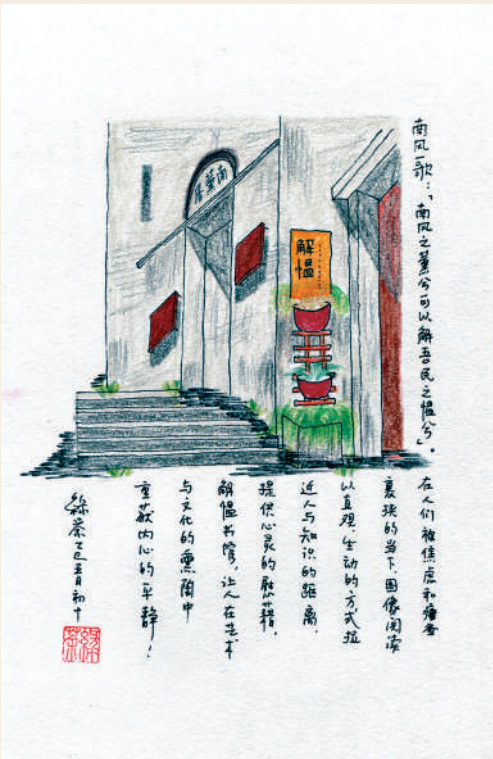 南风歌：「南风之薰兮可以解吾民之愠兮」。
在人们被焦虑和
裹挟的当下，图像阅读
以直观、生动的方式拉
近人与知识的距离，
提供心灵的慰藉。
解愠书馆，让人在艺术
与文化的熏陶中
重获内心的平静！
乙巳五月初十
南薰
解愠